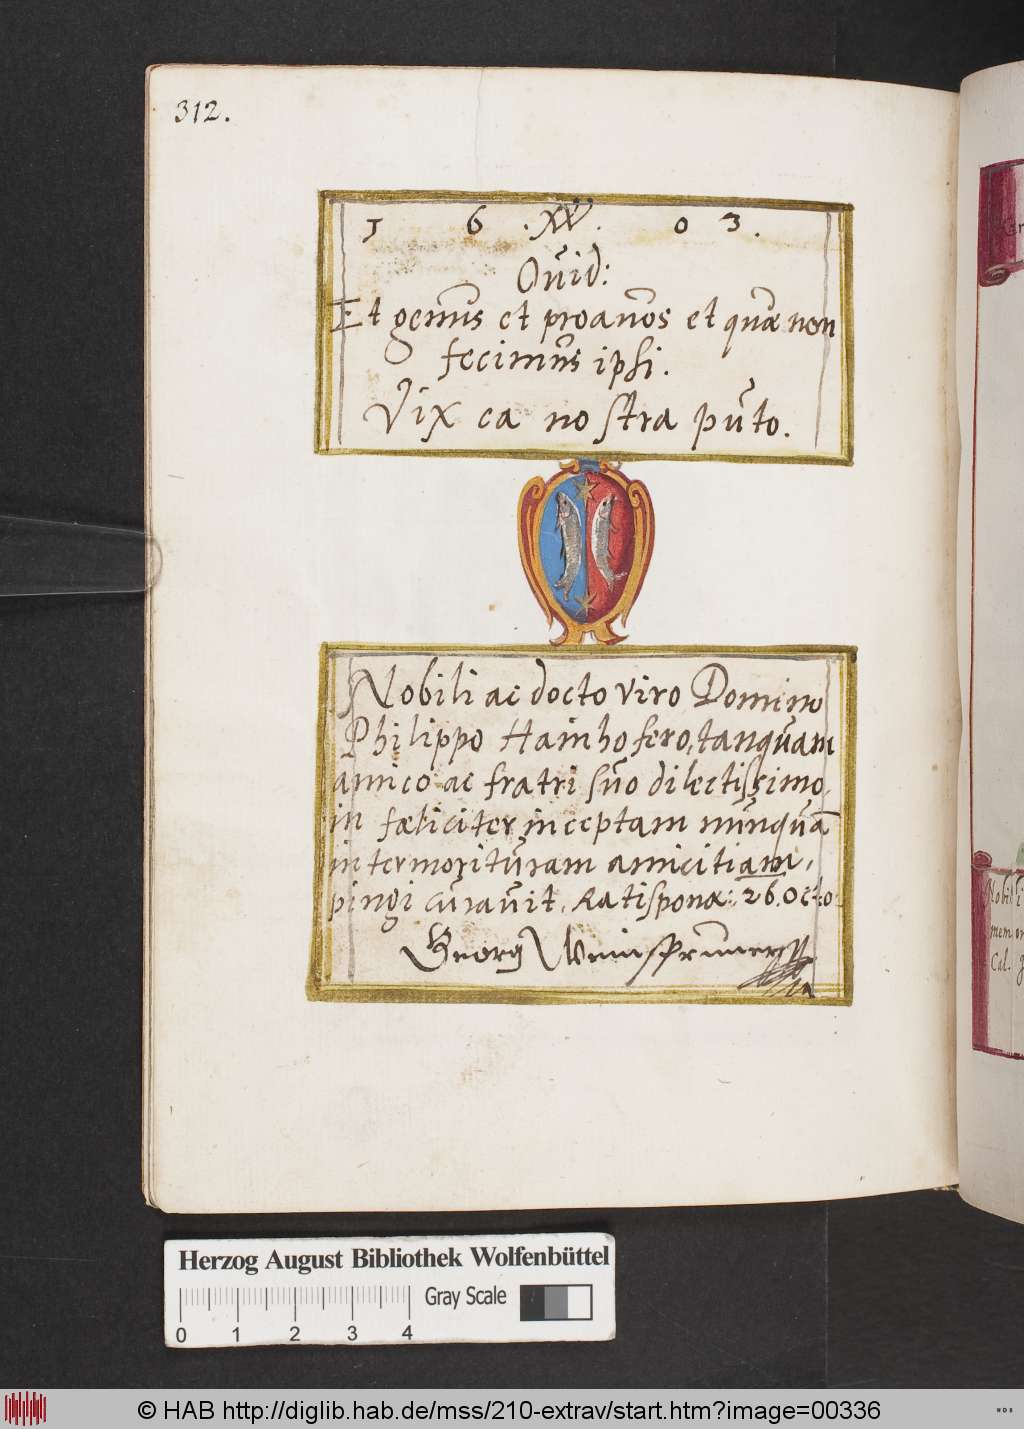 312.
1 6 . W . 0 3 .
Ovid:
Et genus et proavos et quæ non
fecimus ipsi.
Vix ea nostra puto.
Nobili ac docto viro Domino
Philippo Hainhofero, tanquam
amico ac fratri suo dilectissimo,
in fœliciter inceptam nunquā
intermorituram amicitiam,
pingi curavit. Ratisponæ: 26. Octo:
Georg
Herzog August Bibliothek Wolfenbüttel
Gray Scale
0 1 2 3 4
© HAB http://diglib.hab.de/mss/210-extrav/start.htm?image=00336